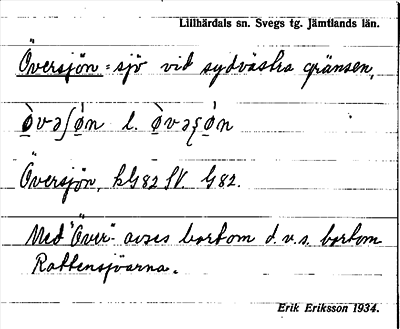 Lillhärdals sn. Svegs tg. Jämtlands län.
Översjön = sjö vid sydvästra gränsen.
l.
Översjön, kG82 SV. G82.
Med "Över" avses bortom d.v.s. bortom
Rattensjöarna.
Erik Eriksson 1934.